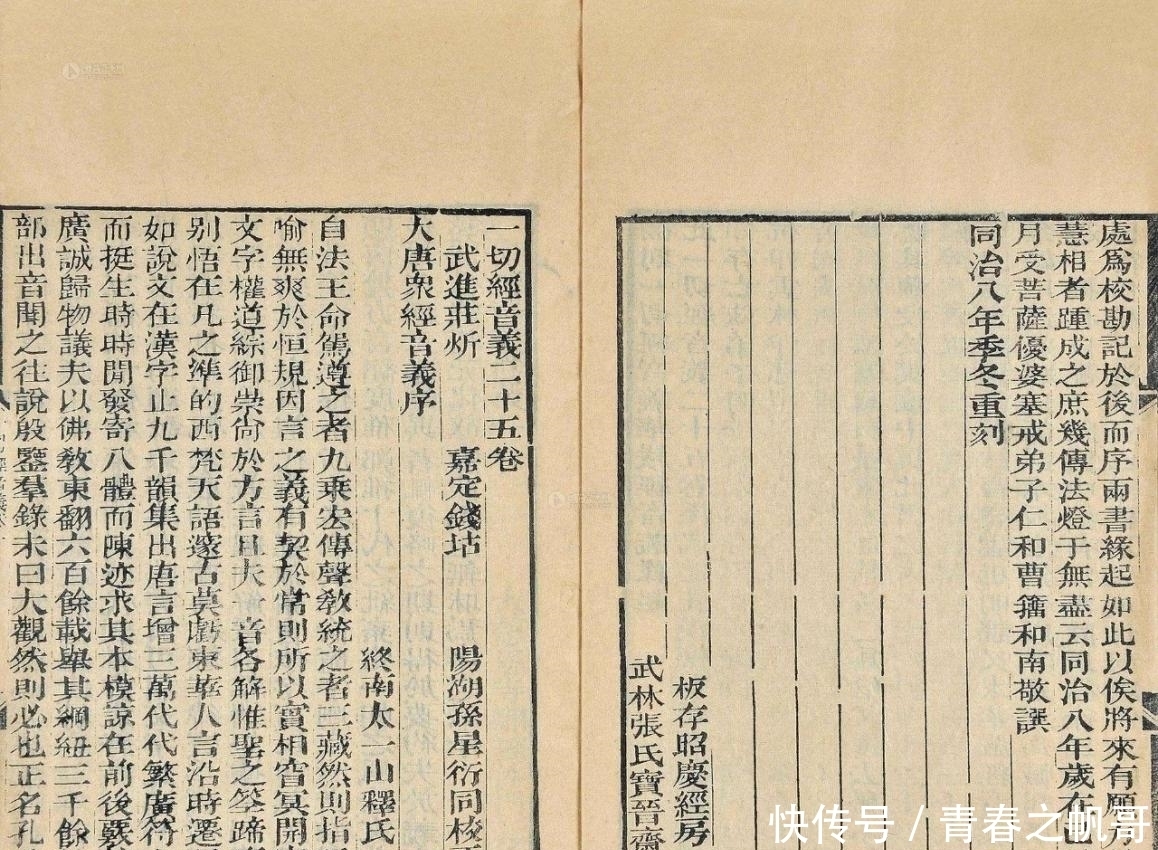 處為校勘記於後而序兩書緣起如此以俟將來有願力
慧相者踵成之庶幾傳法燈于無盡云同治八年歲在己
月受菩薩優婆塞戒弟子仁和曹籀和南敬譔
同治八年季冬重刻
板存昭慶經房
武林張氏寶晉齋
一切經音義二十五卷
武進莊炘 嘉定錢坫 陽湖孫星衍同校正
大唐衆經音義序
終南太一山釋氏
自法王命駕遵之者九乘宏傳聲教統之者三藏然則指
喻無爽於恒規因言之義有契於常則所以實相窅冥開
文字權道綜御崇尚於方言固夫 音各解惟聖之筌蹄
别悟在凡之準的西梵天語邃古莫虧東華人言沿時遷
如說文在漢字止九千韻集出唐言增三萬代代繁廣符
而挺生時時間發寄八體而陳迹求其本模諒在前後覈
廣誠歸物議夫以佛教東翻六百餘載舉其綱紐三千餘
部出音聞之往說殷鑒羣錄未曰大觀然則必也正名孔
快传号 / 青春之帆哥